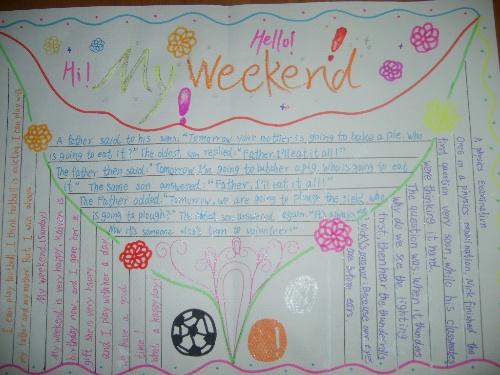 Hi!
Hello!
My Weekend!
A father said to his sons: "Tomorrow your mother is going to bake a pie. Who
is going to eat it?" The oldest son replied: "Father, I'll eat it all!"
The father then said: "Tomorrow I'm going to butcher a pig. Who is going to eat
it" The same son answered: "Father, I'll eat it all!"
The Father added, "Tomorrow, we are going to plough the field who
is going to plough?" The oldest son answered again. "It's always me
Now it's someone else's turn to volunteer!"
I can play football. I think football is exciting. I can play with
my father and my mother. But I win them.
My weekend (Sunday)
My weekend is very happy. Xiaolan is
birthday now, and I gave her a
gift. She is very happy
and I play with her a day.
We have a good
time!
What a happy day!
A physics examination
Once in a physics examination, Nick finished the
first question very soon, while his classmates
were thinking it hard.
The question was: When it thunders
why do we see the lighting
first, then hear the thunder rolls?
Nick's answer: Because our eyes
are before ears.